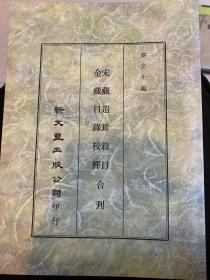 蔡念生編
宋藏遺珍敍目
金藏目錄校釋合刊
新文豐出版公司印行